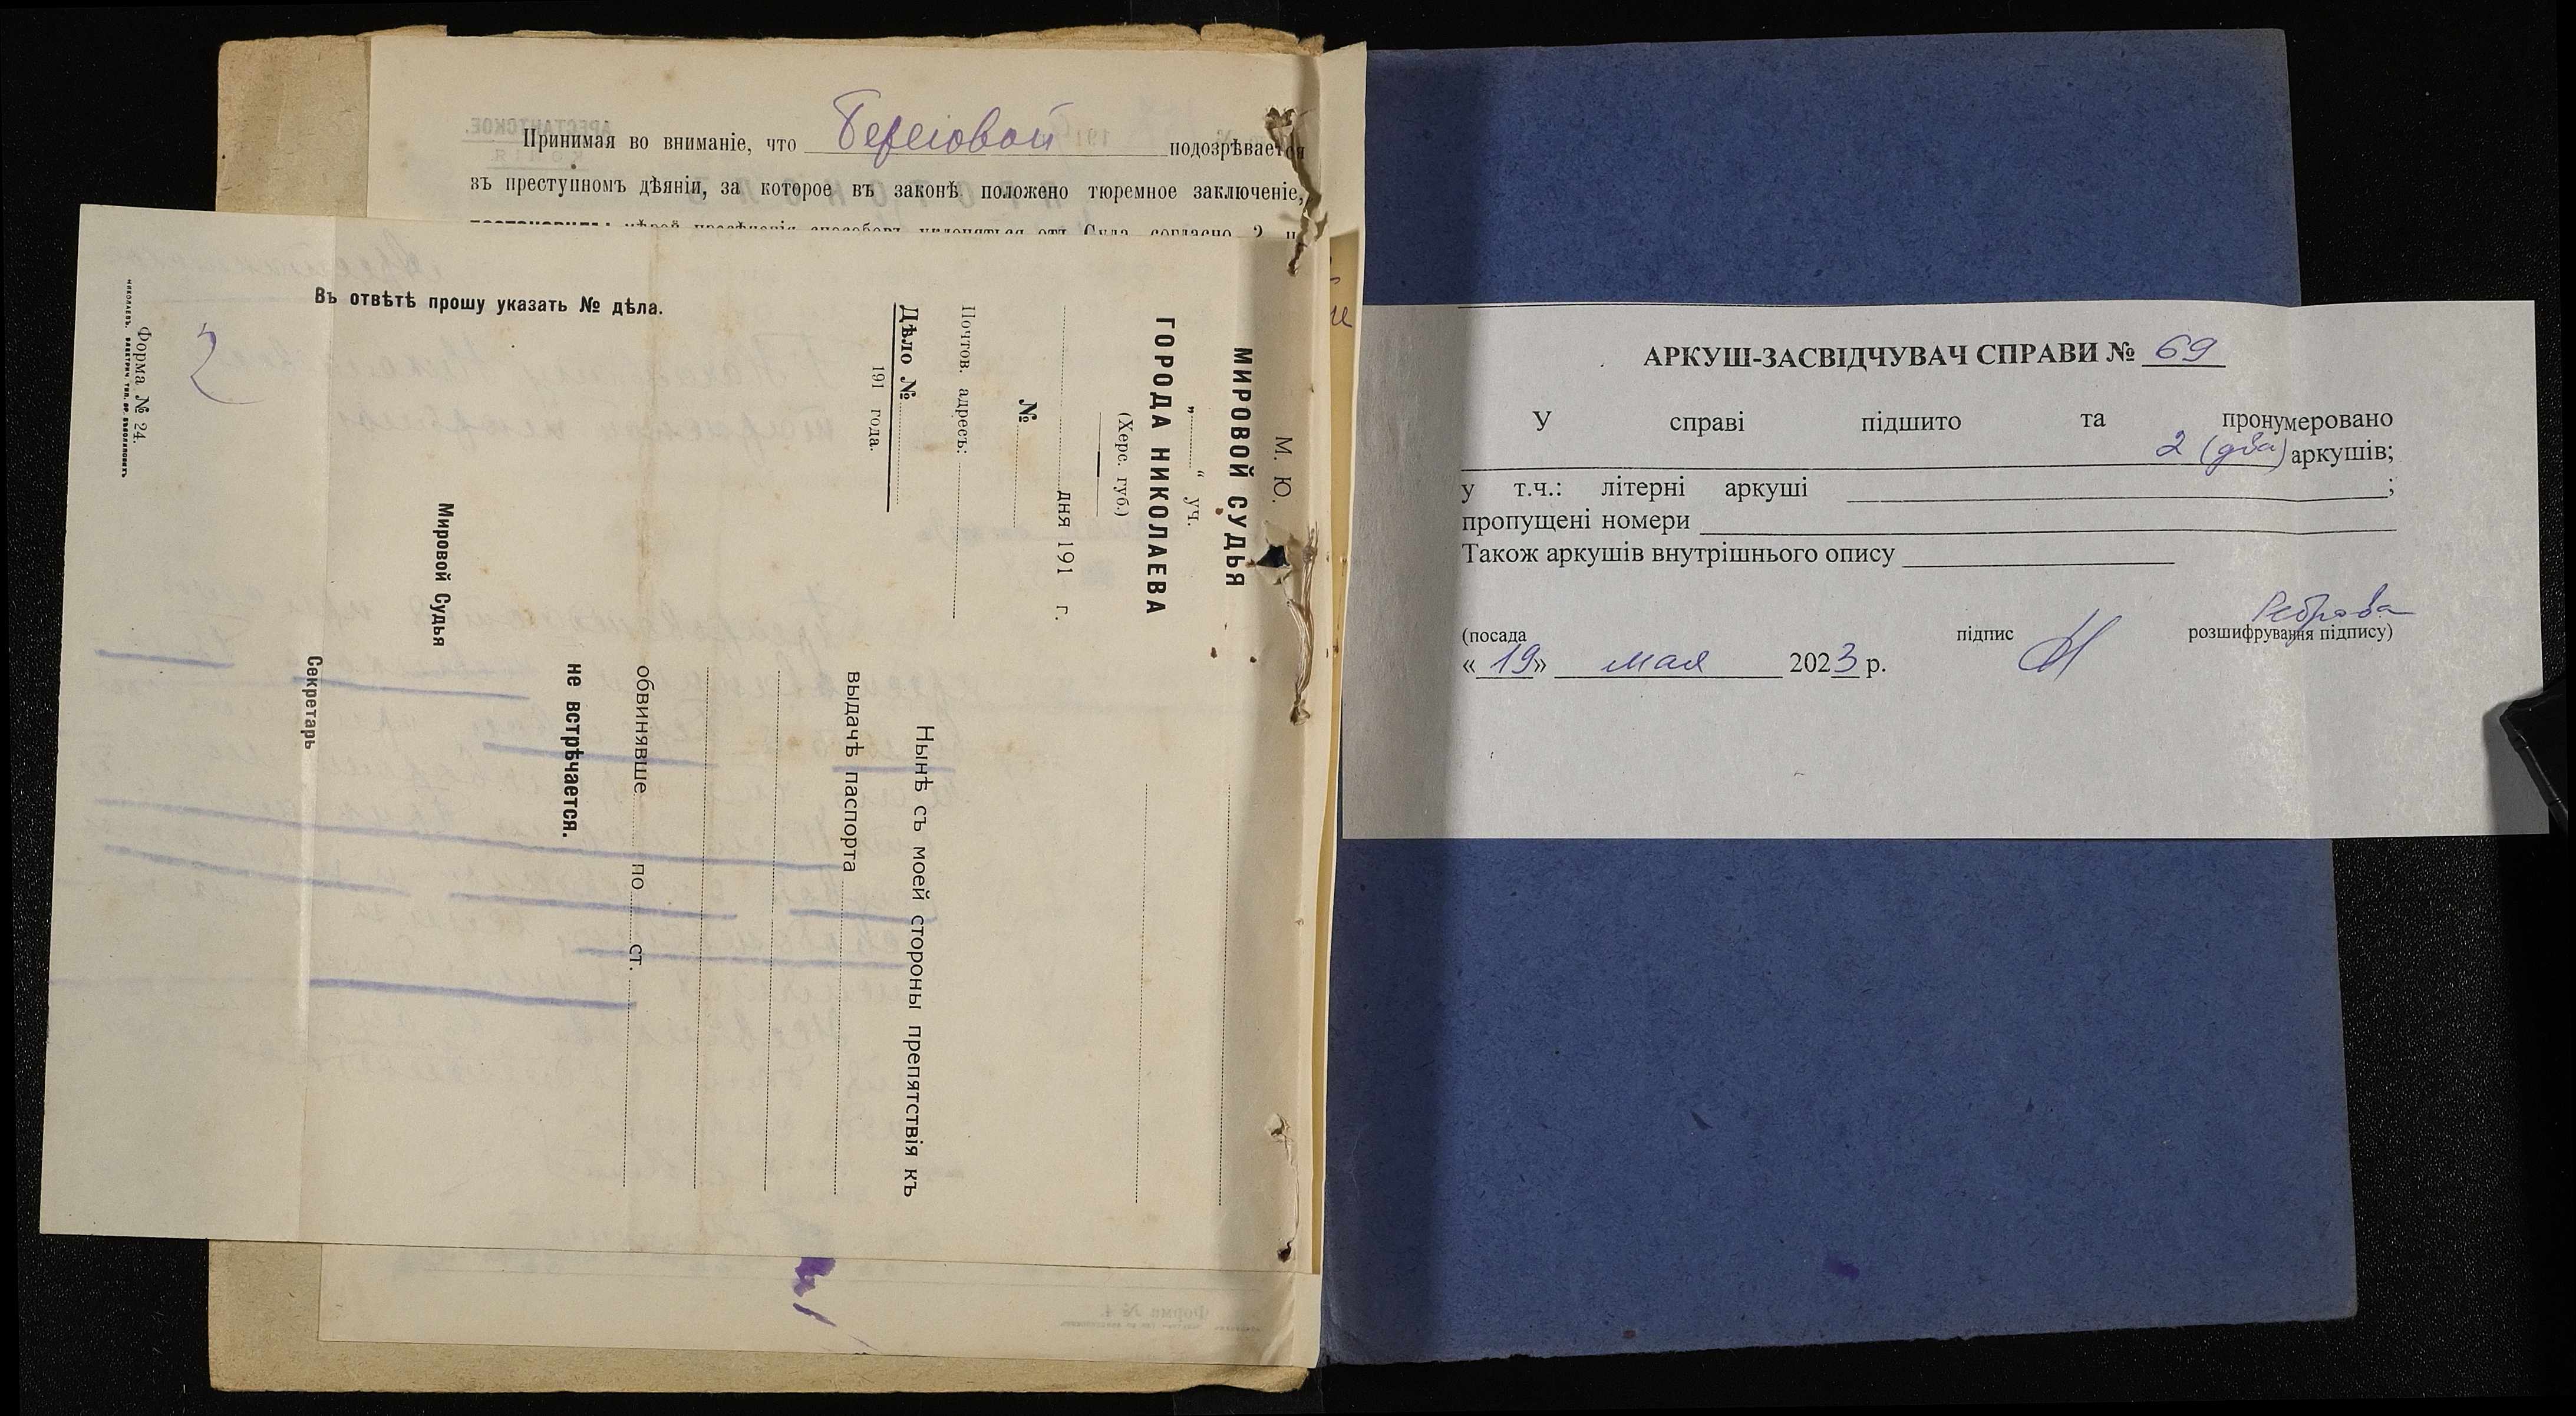 Принимая во вниманіе, что Береговой подозрѣвается
въ преступномъ дѣяніи, за которое въ законѣ положено тюремное заключеніе,
мѣрой пресѣченія способовъ уклоняться отъ Суда, согласно 2 п.
М. Ю.
МИРОВОЙ СУДЬЯ
„ “ уч.
ГОРОДА НИКОЛАЕВА
(Херс. губ.)
дня 191 г.
№
Почтов. адресъ:
Дѣло №
191 года.
Нынѣ съ моей стороны препятствія къ
выдачѣ паспорта
обвинявше по ст.
не встрѣчается.
Мировой Судья
Секретарь
Въ отвѣтѣ прошу указать № дѣла.
2
Форма № 24.
АРКУШ-ЗАСВІДЧУВАЧ СПРАВИ № 69
У справі підшито та пронумеровано
2 (два) аркушів;
у т.ч.: літерні аркуші ;
пропущені номери
Також аркушів внутрішнього опису
Реброва
(посада підпис розшифрування підпису)
« 19 » мая 2023 р.